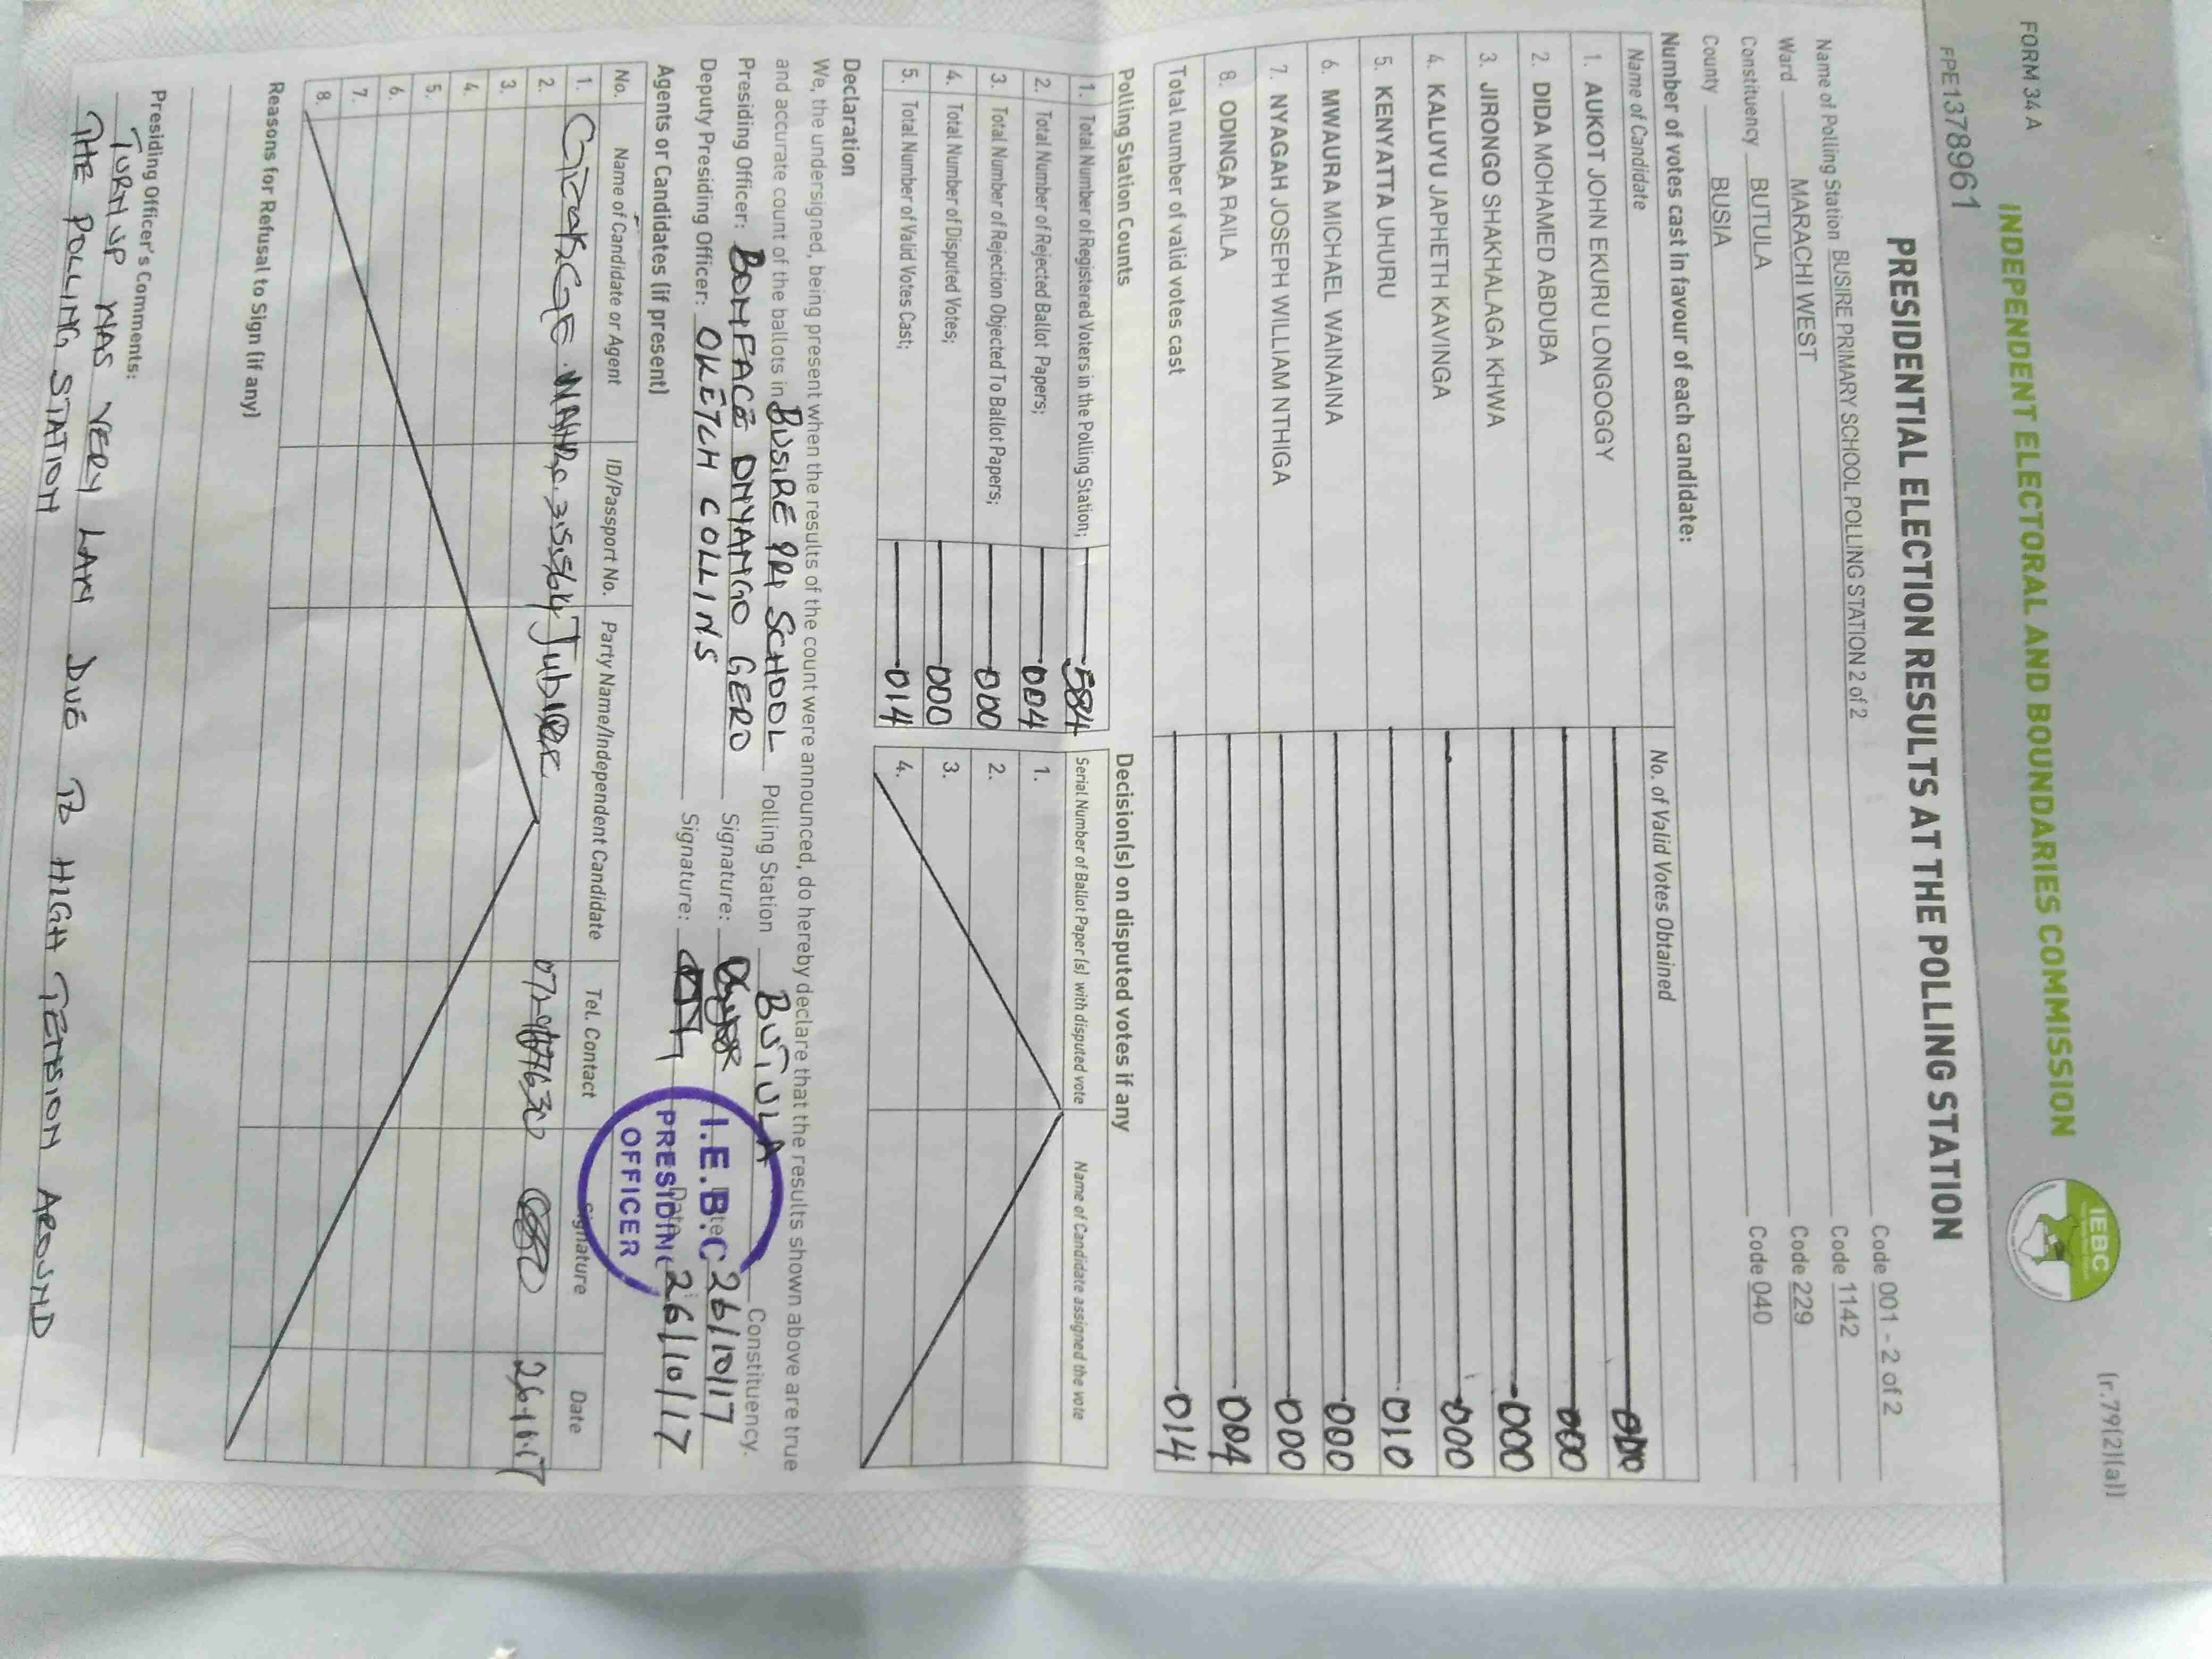 FORM 34 A
(r.79(2)(a))
INDEPENDENT ELECTORAL AND BOUNDARIES COMMISSION
IEBC
FPE1378961
PRESIDENTIAL ELECTION RESULTS AT THE POLLING STATION
Name of Polling Station BUSIRE PRIMARY SCHOOL POLLING STATION 2 of 2 Code 001 - 2 of 2
Ward MARACHI WEST Code 1142
Constituency BUTULA Code 229
County BUSIA Code 040
Number of votes cast in favour of each candidate:
Name of Candidate No. of Valid Votes Obtained
1. AUKOT JOHN EKURU LONGOGGY 000
2. DIDA MOHAMED ABDUBA 000
3. JIRONGO SHAKHALAGA KHWA 000
4. KALUYU JAPHETH KAVINGA 000
5. KENYATTA UHURU 010
6. MWAURA MICHAEL WAINAINA 000
7. NYAGAH JOSEPH WILLIAM NTHIGA 000
8. ODINGA RAILA 004
Total number of valid votes cast 014
Polling Station Counts
1. Total Number of Registered Voters in the Polling Station; 584
2. Total Number of Rejected Ballot Papers; 004
3. Total Number of Rejection Objected To Ballot Papers; 000
4. Total Number of Disputed Votes; 000
5. Total Number of Valid Votes Cast; 014
Decision(s) on disputed votes if any
Serial Number of Ballot Paper (s) with disputed vote Name of Candidate assigned the vote
1.
2.
3.
4.
Declaration
We, the undersigned, being present when the results of the count were announced, do hereby declare that the results shown above are true
and accurate count of the ballots in BUSIRE PRI SCHOOL Polling Station BUTULA Constituency.
Presiding Officer: BONFACE ONYANGO GERO Signature: Date 26/10/17
Deputy Presiding Officer: OKETCH COLLINS Signature: Date 26/10/17
I.E.B.C
PRESIDING
OFFICER
Agents or Candidates (if present)
No. Name of Candidate or Agent ID/Passport No. Party Name/Independent Candidate Tel. Contact Signature Date
1.
2.
3.
4.
5.
6.
7.
8.
Reasons for Refusal to Sign (if any)
Presiding Officer's Comments:
TURN UP WAS VERY LAW DUE TO HIGH TENSION AROUND
THE POLLING STATION